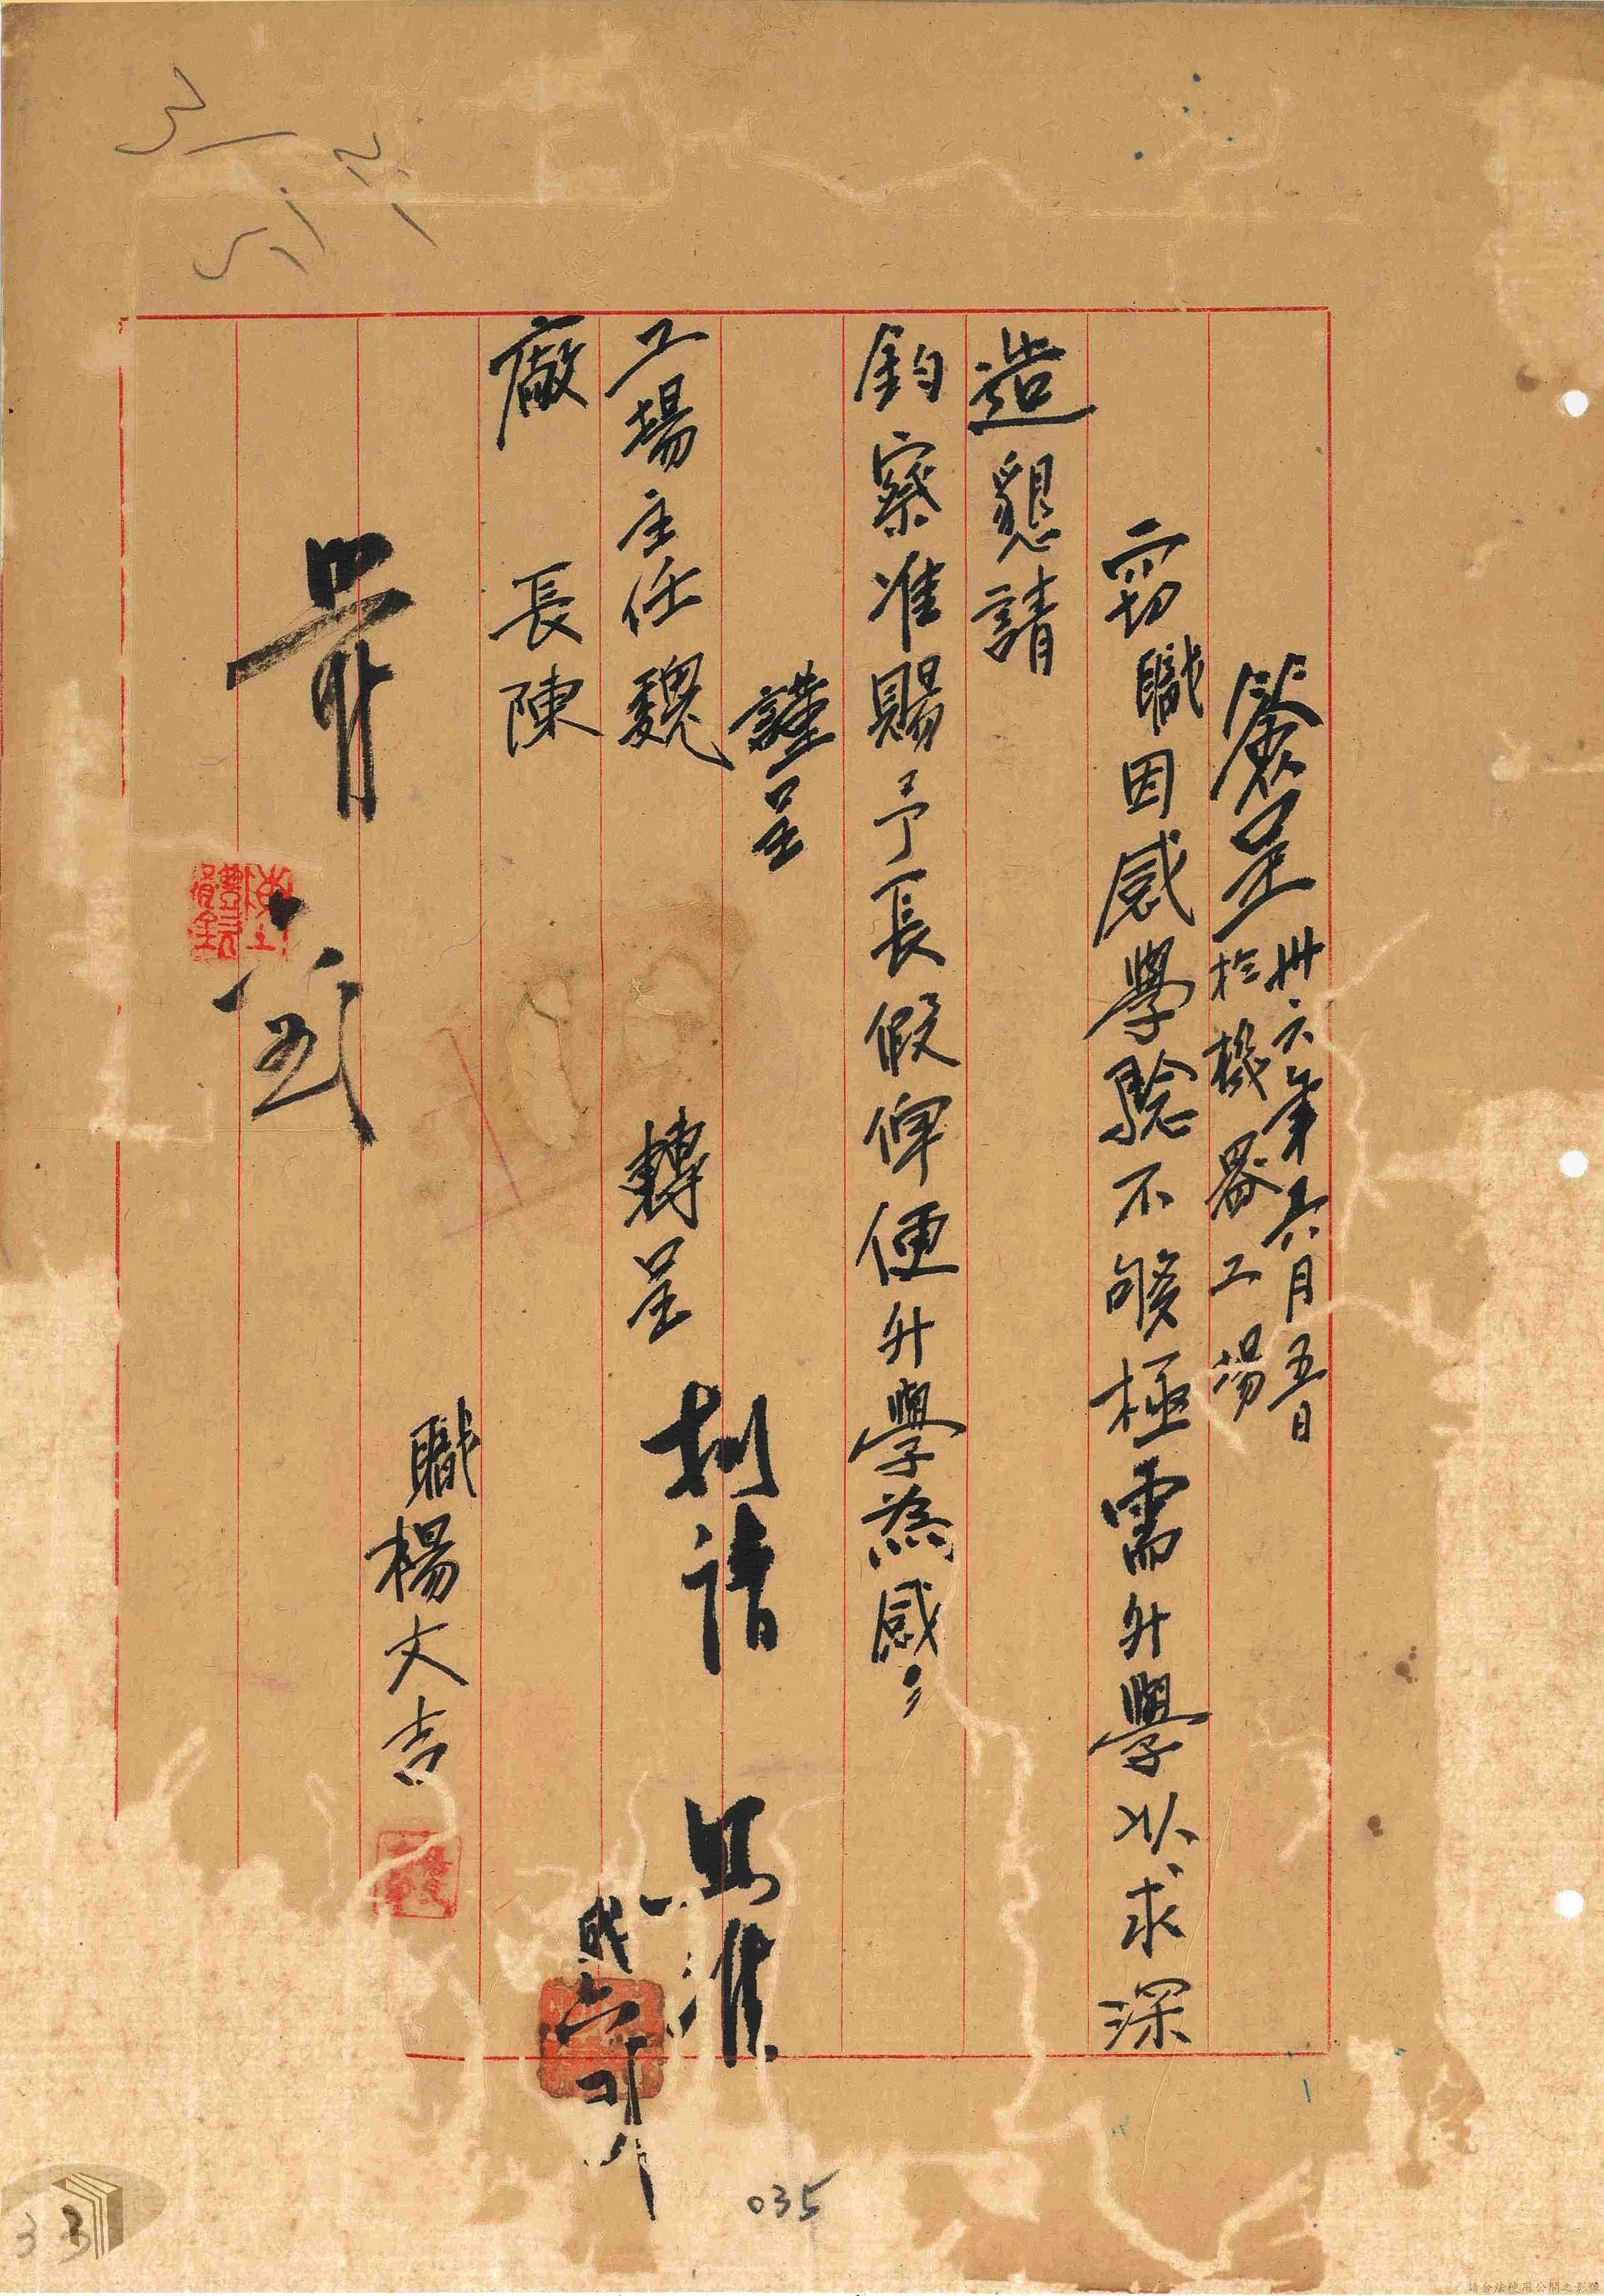 簽呈 卅六年六月五日
於機器工場
竊職因感學驗不够極需升學以求深
造懇請
鈞察准賜予長假俾便升學為感々
謹呈
工場主任魏 轉呈
廠 長陳
職楊文吉
擬請
照准
035
33
請合法使用公開之影像